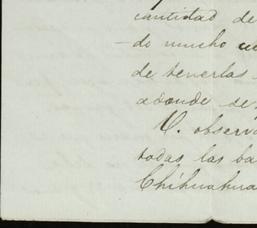 cantidad de
do mucho cu
de tenerlas
adonde se
V. observa
todas las ba
Chihuahua